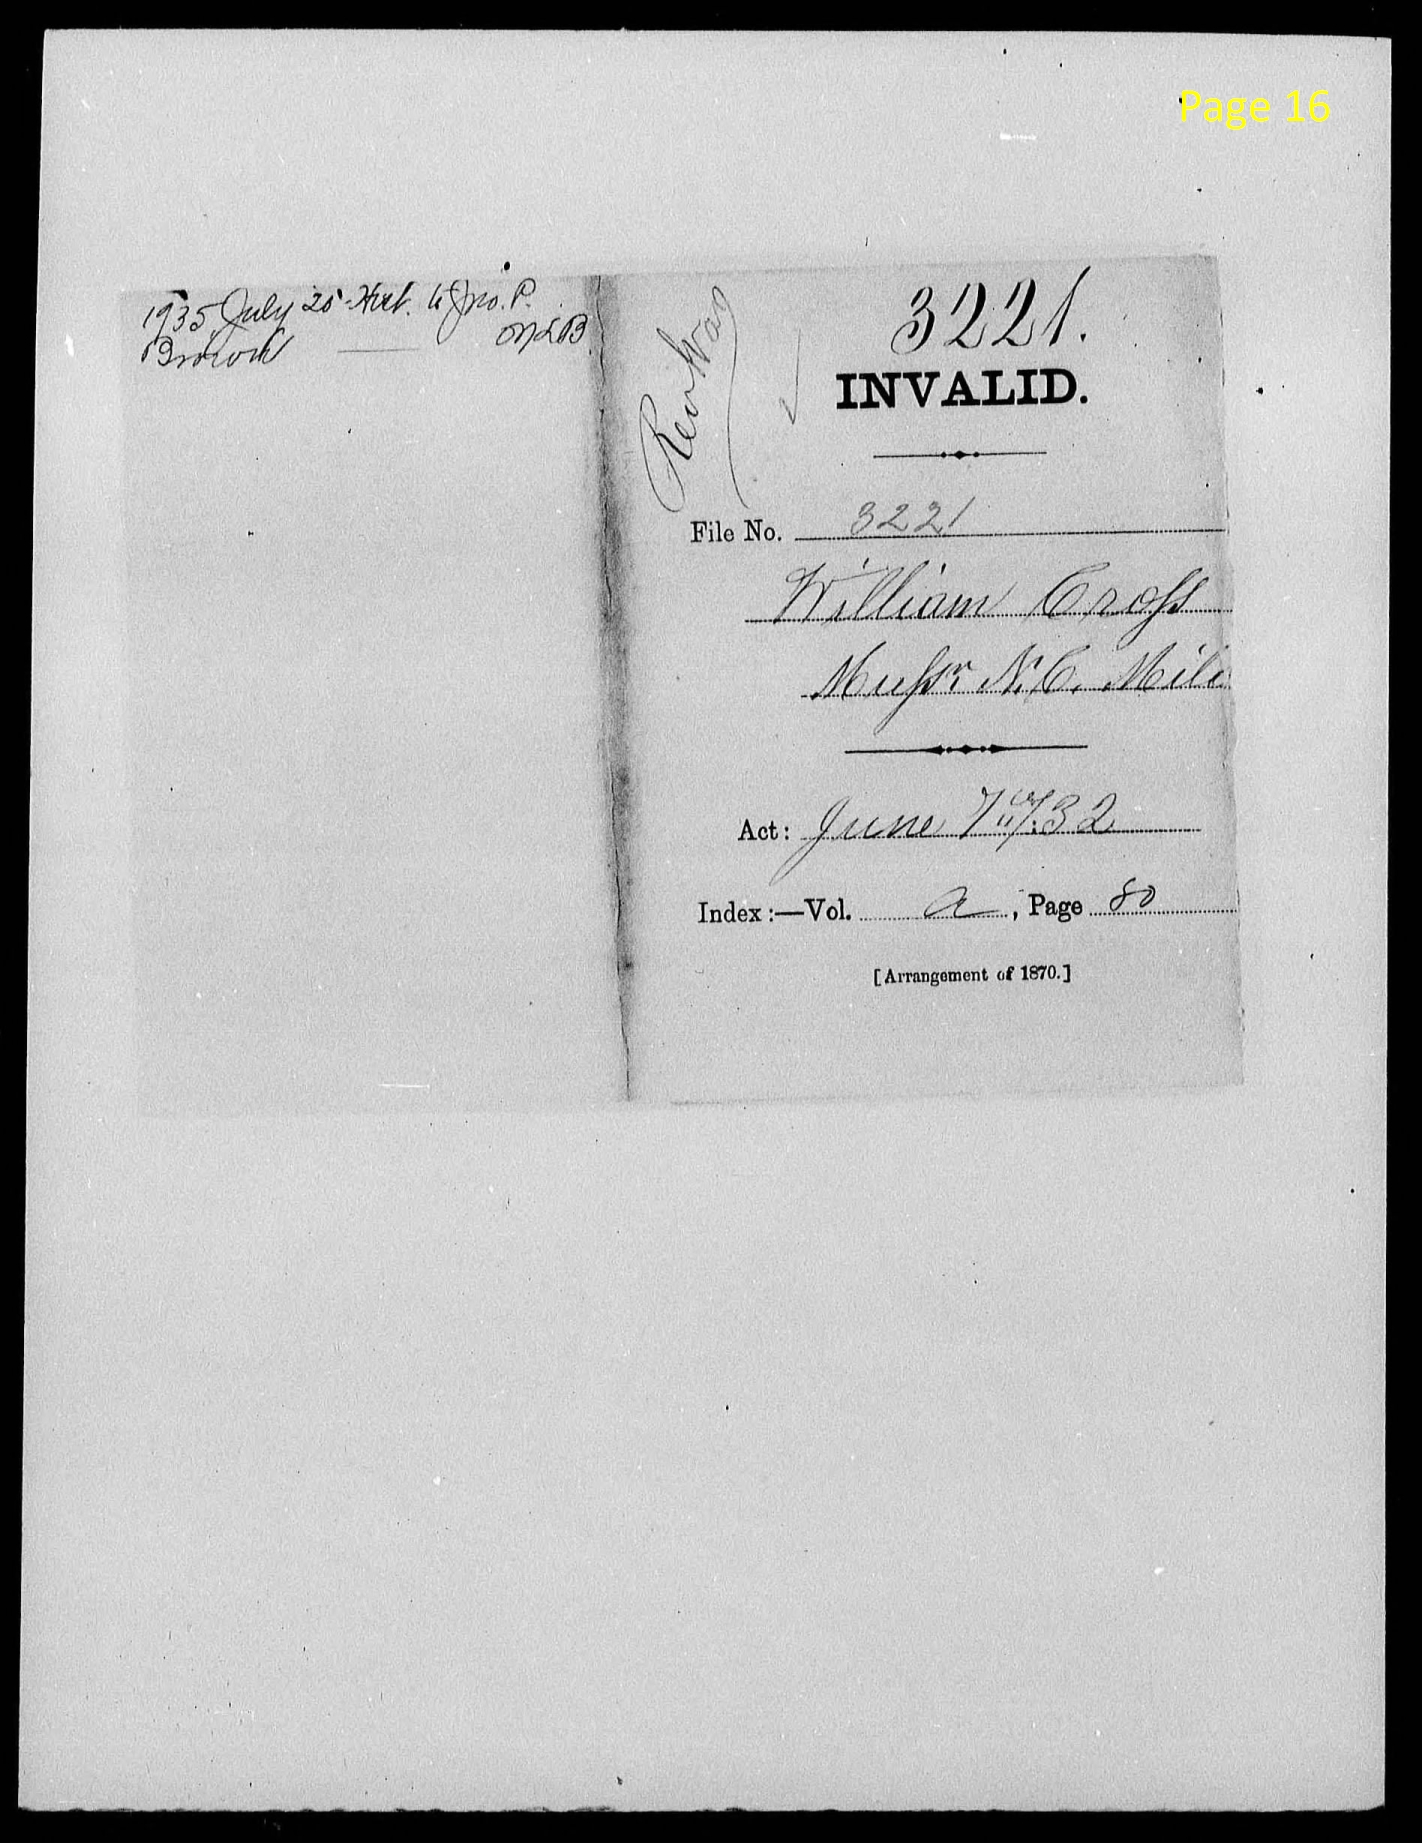 Page 16
1935 July 25 Hist. to Jno. P.
Brown MLB
Rev War
3221.
INVALID.
File No. 3221
William Croſs
N.C. Mili
Act: June 7th/32
Index:—Vol. a, Page 80
[Arrangement of 1870.]